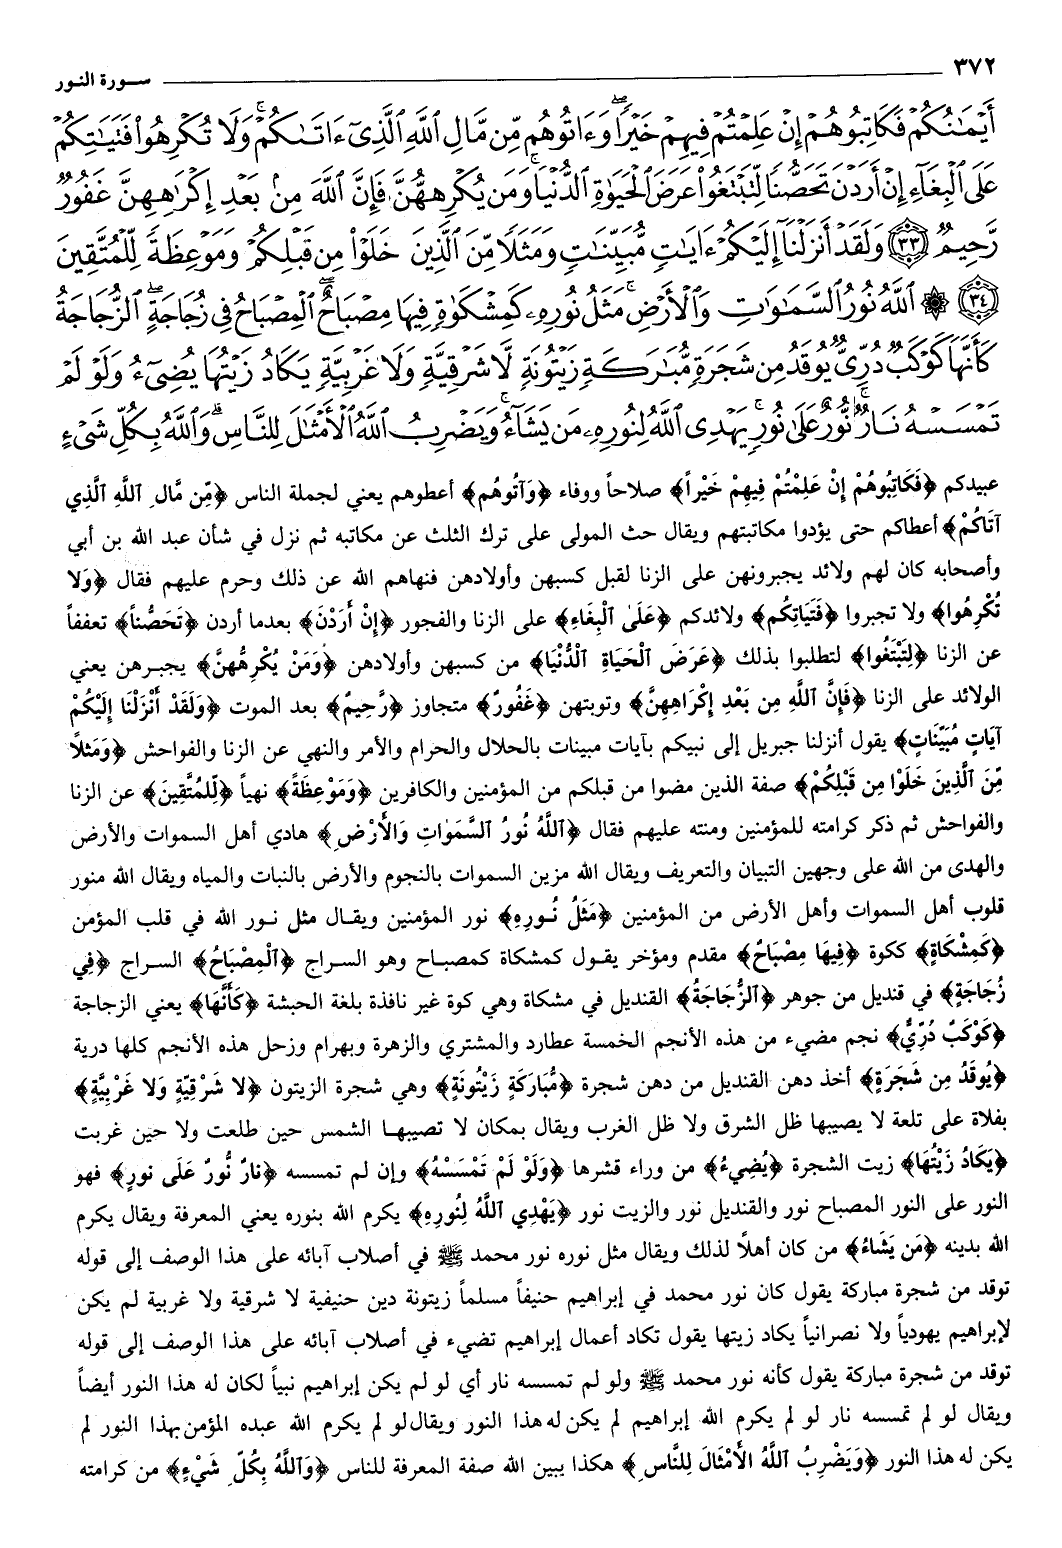 ٣٧٢ سـورة النـور
أَيْمَٰنُكُمْ فَكَاتِبُوهُمْ إِنْ عَلِمْتُمْ فِيهِمْ خَيْرًا ۖ وَءَاتُوهُم مِّن مَّالِ ٱللَّهِ ٱلَّذِىٓ ءَاتَىٰكُمْ ۚ وَلَا تُكْرِهُوا۟ فَتَيَٰتِكُمْ
عَلَى ٱلْبِغَآءِ إِنْ أَرَدْنَ تَحَصُّنًا لِّتَبْتَغُوا۟ عَرَضَ ٱلْحَيَوٰةِ ٱلدُّنْيَا ۚ وَمَن يُكْرِههُّنَّ فَإِنَّ ٱللَّهَ مِنۢ بَعْدِ إِكْرَٰهِهِنَّ غَفُورٌ
رَّحِيمٌ ﴿٣٣﴾ وَلَقَدْ أَنزَلْنَآ إِلَيْكُمْ ءَايَٰتٍ مُّبَيِّنَٰتٍ وَمَثَلًا مِّنَ ٱلَّذِينَ خَلَوْا۟ مِن قَبْلِكُمْ وَمَوْعِظَةً لِّلْمُتَّقِينَ
﴿٣٤﴾ ۞ ٱللَّهُ نُورُ ٱلسَّمَٰوَٰتِ وَٱلْأَرْضِ ۚ مَثَلُ نُورِهِۦ كَمِشْكَوٰةٍ فِيهَا مِصْبَاحٌ ۖ ٱلْمِصْبَاحُ فِى زُجَاجَةٍ ۖ ٱلزُّجَاجَةُ
كَأَنَّهَا كَوْكَبٌ دُرِّىٌّ يُوقَدُ مِن شَجَرَةٍ مُّبَٰرَكَةٍ زَيْتُونَةٍ لَّا شَرْقِيَّةٍ وَلَا غَرْبِيَّةٍ يَكَادُ زَيْتُهَا يُضِىٓءُ وَلَوْ لَمْ
تَمْسَسْهُ نَارٌ ۚ نُّورٌ عَلَىٰ نُورٍ ۗ يَهْدِى ٱللَّهُ لِنُورِهِۦ مَن يَشَآءُ ۚ وَيَضْرِبُ ٱللَّهُ ٱلْأَمْثَٰلَ لِلنَّاسِ ۗ وَٱللَّهُ بِكُلِّ شَىْءٍ
عبيدكم ﴿فَكَاتِبُوهُمْ إِنْ عَلِمْتُمْ فِيهِمْ خَيْراً﴾ صلاحاً ووفاء ﴿وَآتُوهُم﴾ أعطوهم يعني لجملة الناس ﴿مِّن مَّالِ ٱللَّهِ ٱلَّذِي
آتَاكُمْ﴾ أعطاكم حتى يؤدوا مكاتبتهم ويقال حث المولى على ترك الثلث عن مكاتبه ثم نزل في شأن عبد الله بن أبي
وأصحابه كان لهم ولائد يجبرونهن على الزنا لقبل كسبهن وأولادهن فنهاهم الله عن ذلك وحرم عليهم فقال ﴿وَلا
تُكْرِهُوا﴾ ولا تجبروا ﴿فَتَيَاتِكُم﴾ ولائدكم ﴿عَلَىٰ ٱلْبِغَاءِ﴾ على الزنا والفجور ﴿إِنْ أَرَدْنَ﴾ بعدما أردن ﴿تَحَصُّناً﴾ تعففاً
عن الزنا ﴿لِتَبْتَغُوا﴾ لتطلبوا بذلك ﴿عَرَضَ ٱلْحَيَاةِ ٱلْدُّنْيَا﴾ من كسبهن وأولادهن ﴿وَمَنْ يُكْرِههُّنَّ﴾ يجبـرهن يعني
الولائد على الزنا ﴿فَإِنَّ ٱللَّهِ مِن بَعْدِ إِكْرَاهِهِنَّ﴾ وتوبتهن ﴿غَفُورٌ﴾ متجاوز ﴿رَّحِيمٌ﴾ بعد الموت ﴿وَلَقَدْ أَنْزَلْنَا إِلَيْكُمْ
آيَاتٍ مُبَيِّنَاتٍ﴾ يقول أنزلنا جبريل إلى نبيكم بآيات مبينات بالحلال والحرام والأمر والنهي عن الزنا والفواحش ﴿وَمَثلاً
مِّنَ ٱلَّذِينَ خَلَوْا مِن قَبْلِكُمْ﴾ صفة الذين مضوا من قبلكم من المؤمنين والكافرين ﴿وَمَوْعِظَةً﴾ نهياً ﴿لِّلمُتَّقِينَ﴾ عن الزنا
والفواحش ثم ذكر كرامته للمؤمنين ومنته عليهم فقال ﴿ٱللَّهُ نُورُ ٱلسَّمَوَاتِ وَالأَرْضِ﴾ هادي أهل السموات والأرض
والهدى من الله على وجهين التبيان والتعريف ويقال الله مزين السموات بالنجوم والأرض بالنبات والمياه ويقال الله منور
قلوب أهل السموات وأهل الأرض من المؤمنين ﴿مَثَلُ نُورِهِ﴾ نور المؤمنين ويقـال مثل نـور الله في قلب المؤمن
﴿كَمِشْكَاةٍ﴾ ككوة ﴿فِيهَا مِصْبَاحٌ﴾ مقدم ومؤخر يقـول كمشكاة كمصبـاح وهو السـراج ﴿ٱلْمِصْبَاحُ﴾ السـراج ﴿فِي
زُجَاجَةٍ﴾ في قنديل من جوهر ﴿ٱلزُّجَاجَةُ﴾ القنديل في مشكاة وهي كوة غير نافذة بلغة الحبشة ﴿كَأَنَّهَا﴾ يعني الزجاجة
﴿كَوْكَبٌ دُرِّيٌّ﴾ نجم مضيء من هذه الأنجم الخمسة عطارد والمشتري والزهرة وبهرام وزحل هذه الأنجم كلها درية
﴿يُوقَدُ مِن شَجَرَةٍ﴾ أخذ دهن القنديل من دهن شجرة ﴿مُّبَارَكَةٍ زَيْتُونَةٍ﴾ وهي شجرة الزيتون ﴿لا شَرْقِيَّةٍ وَلا غَرْبِيَّةٍ﴾
بفلاة على تلعة لا يصيبها ظل الشرق ولا ظل الغرب ويقال بمكان لا تصيبهـا الشمس حين طلعت ولا حين غربت
﴿يَكَادُ زَيْتُهَا﴾ زيت الشجرة ﴿يُضِيءُ﴾ من وراء قشرها ﴿وَلَوْ لَمْ تَمْسَسْهُ﴾ وإن لم تمسسه ﴿نارٌ نُّورٌ عَلَى نورٍ﴾ فهو
النور على النور المصباح نور والقنديل نور والزيت نور ﴿يَهْدِي ٱللَّهُ لِنُورِهِ﴾ يكرم الله بنوره يعني المعرفة ويقال يكرم
الله بدينه ﴿مَن يَشَاءُ﴾ من كان أهلاً لذلك ويقال مثل نوره نور محمد ﷺ في أصلاب آبائه على هذا الوصف إلى قوله
توقد من شجرة مباركة يقول كان نور محمد في إبراهيم حنيفاً مسلماً زيتونة دين حنيفية لا شرقية ولا غربية لم يكن
لإبراهيم يهودياً ولا نصرانياً يكاد زيتها يقول تكاد أعمال إبراهيم تضيء في أصلاب آبائه على هذا الوصف إلى قوله
توقد من شجرة مباركة يقول كأنه نور محمد ﷺ ولو لم تمسسه نار أي لو لم يكن إبراهيم نبياً لكان له هذا النور أيضاً
ويقال لو لم تمسسه نار لو لم يكرم الله إبراهيم لم يكن له هذا النور ويقال لو لم يكرم الله عبده المؤمن بهذا النور لم
يكن له هذا النور ﴿وَيَضْرِبُ ٱللَّهُ الأَمْثَالَ لِلنَّاسِ﴾ هكذا يبين الله صفة المعرفة للناس ﴿وَٱللَّهُ بِكُلِّ شَيْءٍ﴾ من كرامته